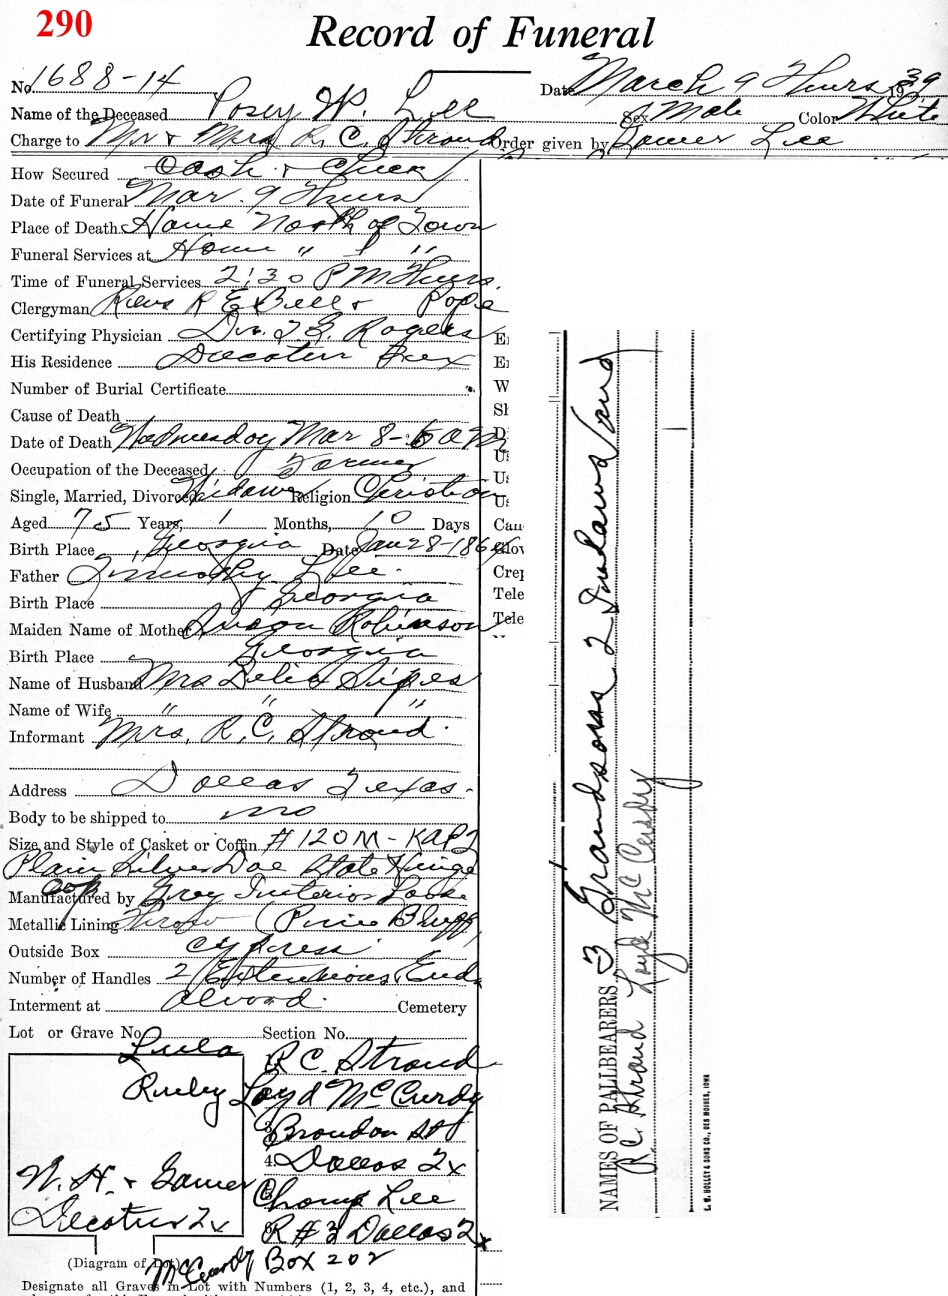 290
Record of Funeral
No. 1688-14 Date March 9 Thurs 1939
Name of the Deceased Posey W. Lee Sex Male Color White
Charge to Mr + Mrs R. C. Stroud Order given by Homer Lee
How Secured Cash + Check
Date of Funeral Mar. 9 Thurs
Place of Death Home North of Town
Funeral Services at Home " " "
Time of Funeral Services 2:30 P M Thurs.
Clergyman Revs R E Bell + Pope
Certifying Physician Dr. Rogers
His Residence Decatur Tex
Number of Burial Certificate
Cause of Death
Date of Death Wednesday Mar 8- A M
Occupation of the Deceased Farmer
Single, Married, Divorced Widower Religion Christian
Aged 75 Years, 1 Months, 10 Days
Birth Place Georgia Date Jan 28-186
Father Timothy Lee.
Birth Place Georgia
Maiden Name of Mother Susan Robinson
Birth Place Georgia
Name of Husband Mrs Delia Sipes
Name of Wife " " "
Informant Mrs. R. C. Stroud.
Address Dallas Texas.
Body to be shipped to no
Size and Style of Casket or Coffin # 120 M - KAP
Plain Silver Doe State Hinge
cap
Manufactured by Grey Interior
Metallic Lining Throw (Pine Bluff)
Outside Box cypress
Number of Handles 2 Extensions Ends
Interment at Alvord. Cemetery
Lot or Grave No. Section No.
Lula R C. Stroud
Ruby Loyd McCurdy
Brandon St
4. Dallas Tx
W. H. + Homer Lee
Decatur Tx R # 3 Dallas Tx
(Diagram of Lot) McCurdy Box 202
Designate all Graves in Lot with Numbers (1, 2, 3, 4, etc.), and
W
Can
Tele
Tele
NAMES OF PALLBEARERS 3 Grandsons 2
R C. Stroud Loyd McCurdy
L. W. HOLLEY & SONS CO., DES MOINES, IOWA